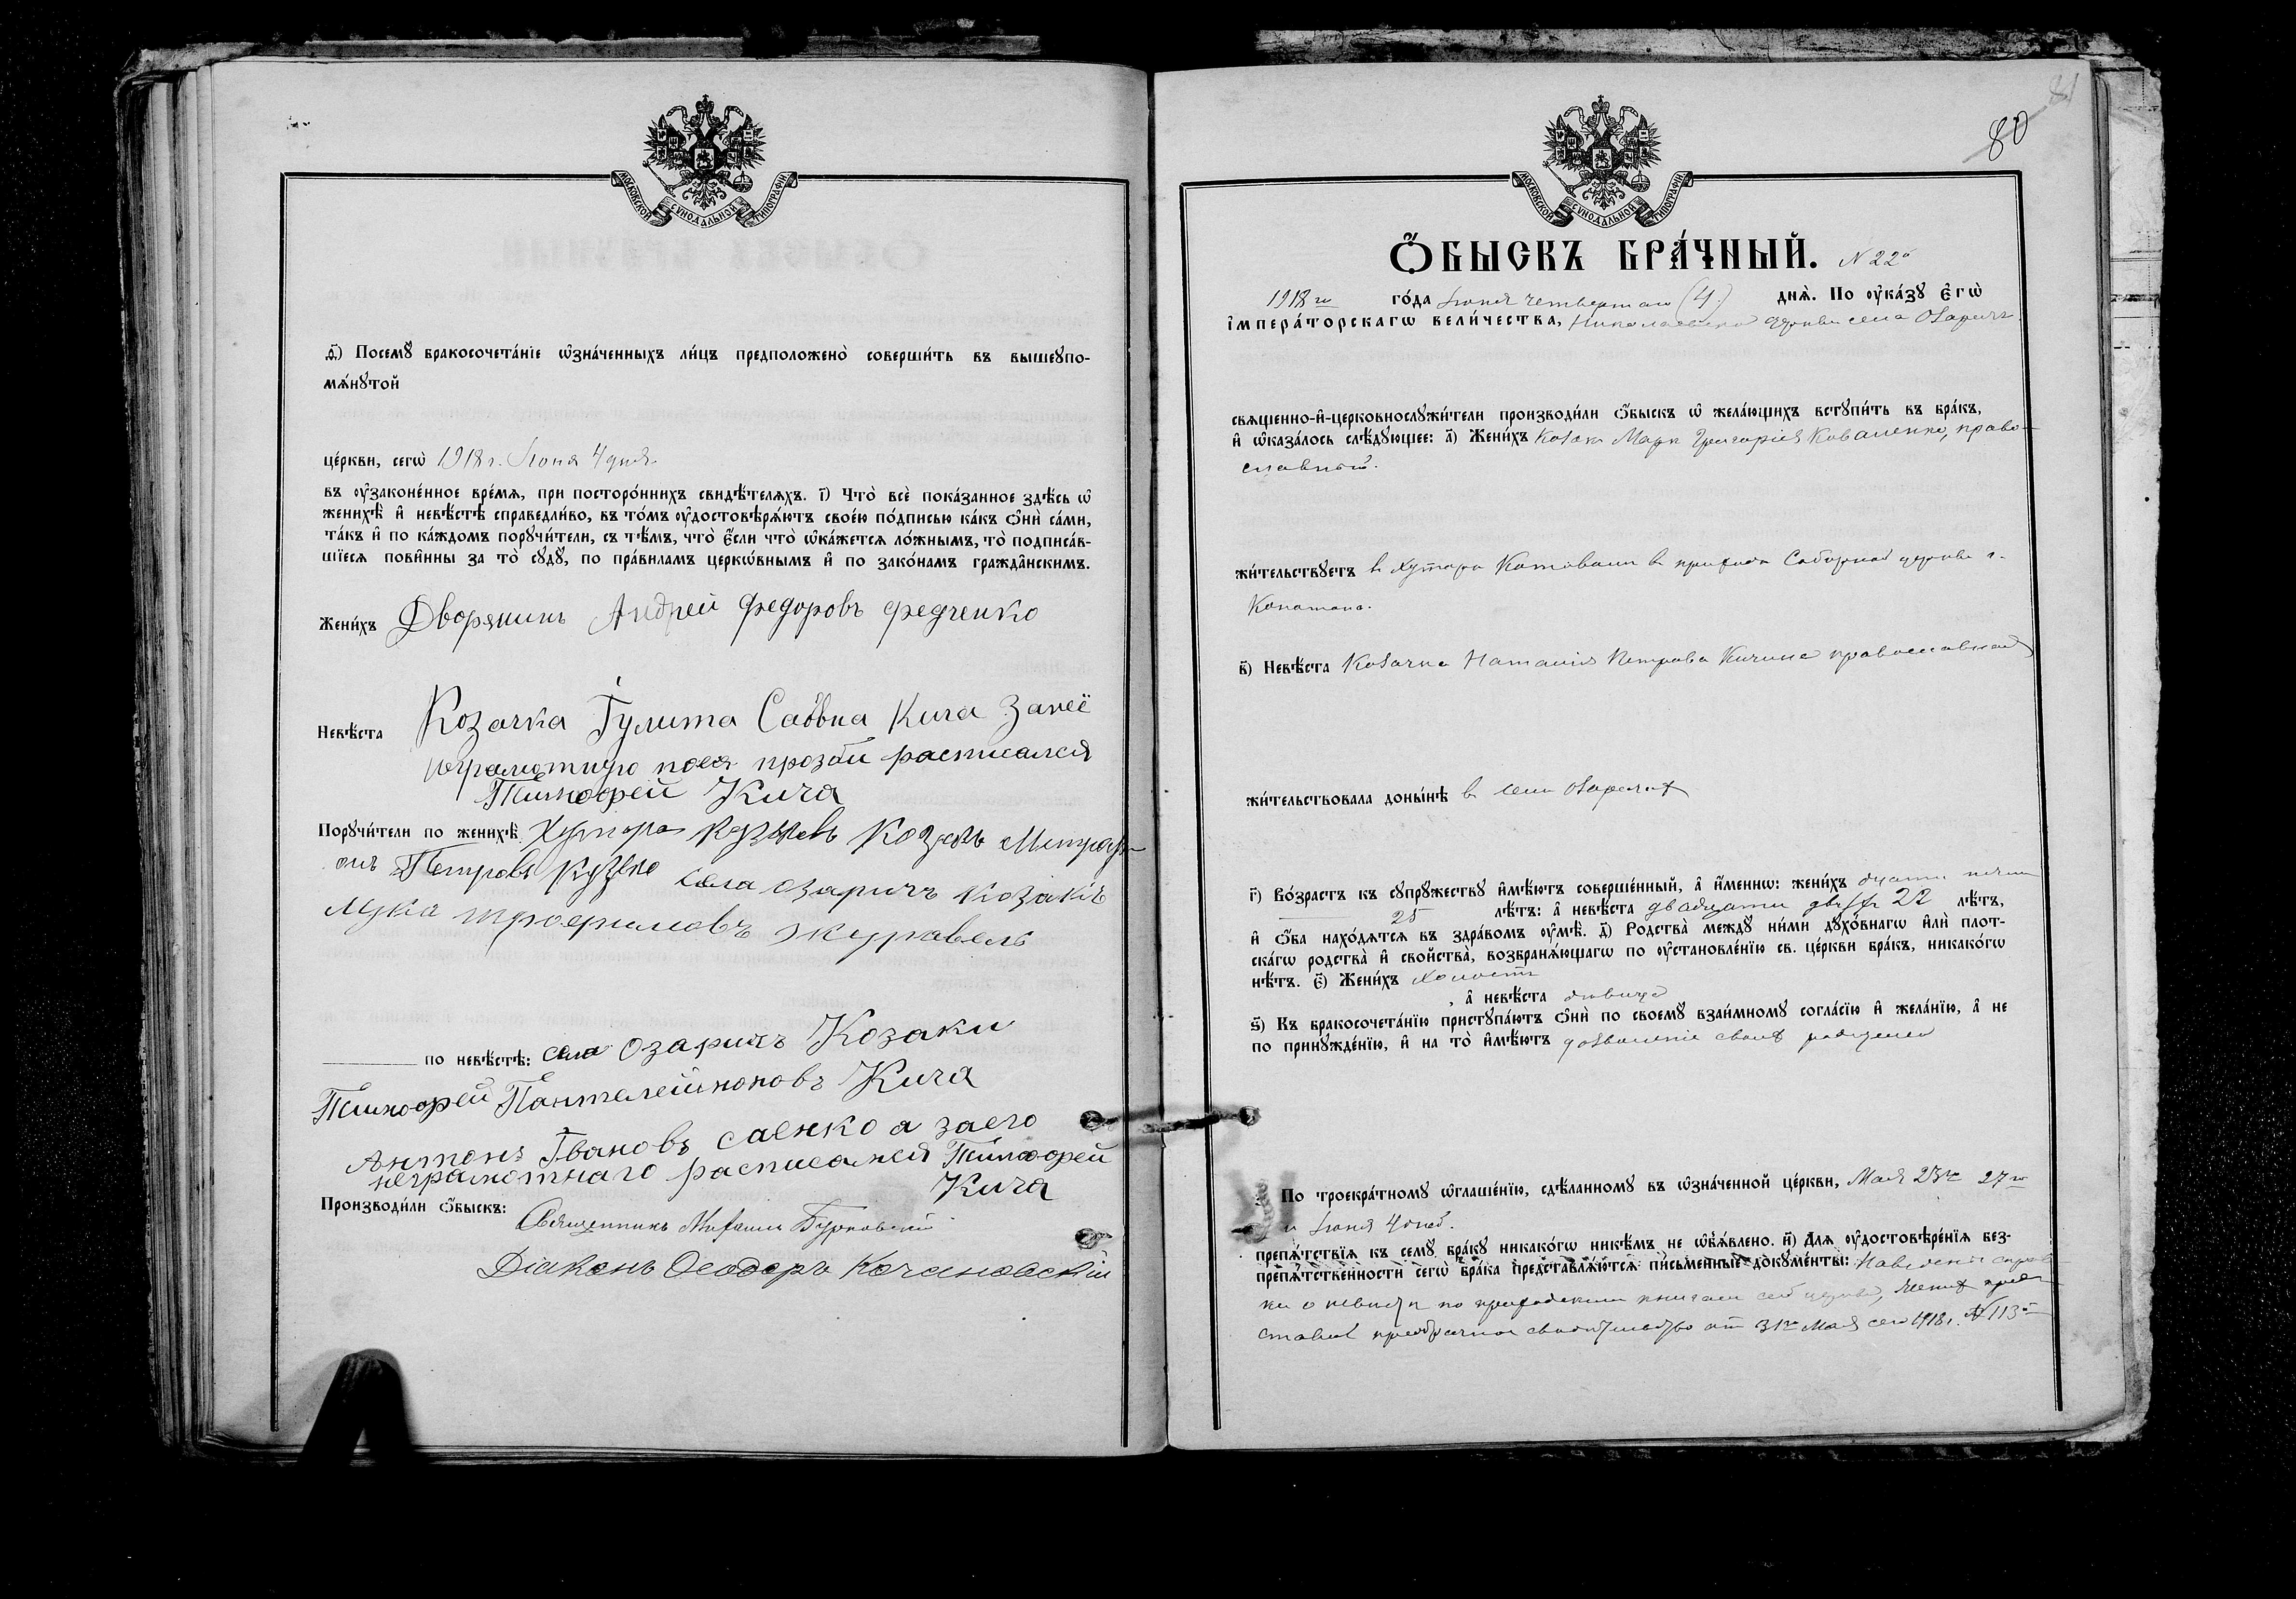 МОСКОВСКОЙ СѴНОДАЛЬНОЙ ТИПОГРАФІИ
з҃) Посемꙋ̀ бракосочета́нїе ѡ҆зна́ченныхъ ли́цъ предположено̀ соверши́ть въ вышеꙋпо-
мѧ́нꙋтой
це́ркви, сегѡ̀ 1918 г. Іюня 4 дня
въ ᲂу҆законе́нное вре́мѧ, при посторо́ннихъ свидѣ́телѧхъ. і҃) Что̀ всѐ пока́занное здѣ́сь ѡ҆
женихѣ̀ и҆ невѣ́стѣ справедли́во, въ то́мъ ᲂу҆достовѣрѧ́ютъ свое́ю по́дписью ка́къ ѻ҆нѝ са́ми,
та́къ и҆ по ка́ждомъ порꙋчи́тели, съ тѣ́мъ, что̀ є҆́сли что̀ ѡ҆ка́жетсѧ ло́жнымъ, то̀ подписа́в-
шїесѧ пови́нны за то̀ сꙋдꙋ̀, по пра́виламъ церкѡ́внымъ и҆ по зако́намъ гражда́нскимъ.
Жени́хъ Дворянинъ Андрей Федоровъ Федченко
Невѣ́ста Козачка Іулита Саввна Кича Занеё
неграмотную поея прозби расписался
Тимофей Кича
Порꙋчи́тели по женихѣ̀: Хутора Козакъ Митроф-
онъ Петровъ Кузько села Озаричъ Козакъ
Лука Трофимовъ Журавель
по невѣ́стѣ: села Озаричъ Козаки
Тимофей Пантелеймоновъ Кича
Антонъ Івановъ Саенко а заего
неграмотнаго расписался Тимофей
Кича
Производи́ли ѻ҆́быскъ: Священникъ Михаилъ Бурковскій
Діаконъ Ѳеодоръ Кочановскій
80
МОСКОВСКОЙ СѴНОДАЛЬНОЙ ТИПОГРАФІИ
Ѻ҆́БЫСКЪ БРА́ЧНЫЙ. N 22й
1918 го го́да Іюня четвертаго (4.) днѧ̀. По ᲂу҆ка́зꙋ є҆гѡ̀
і҆мпера́торскагѡ вели́чества, Николаевской церкви села Озаричъ
свѧщенно-и҆-церковнослꙋжи́тели производи́ли ѻ҆́быскъ ѡ҆ жела́ющихъ встꙋпи́ть въ бра́къ,
и҆ ѡ҆каза́лось слѣ́дꙋющее: а҃) Жени́хъ Козакъ Маркъ Григоріев Коваленко, право-
славный.
жи́тельствꙋетъ в хуторѣ в приходѣ Соборной церкви г.
Конотопа.
в҃) Невѣ́ста Козачка Наталія Петрова Кичина православная
жи́тельствовала доны́нѣ в селѣ Озаричахъ
г҃) Во́зрастъ къ сꙋпрꙋ́жествꙋ и҆мѣ́ютъ соверше́нный, а҆ и҆́менно: жени́хъ
25 лѣ́тъ: а҆ невѣ́ста двадцати двухъ 22 лѣ́тъ,
и҆ ѻ҆́ба нахо́дѧтсѧ въ здра́вомъ ᲂу҆мѣ̀. д҃) Родства̀ междꙋ̀ ни́ми дꙋхо́внагѡ и҆лѝ плот-
ска́гѡ родства̀ и҆ сво́йства, возбранѧ́ющагѡ по ᲂу҆становле́нїю св. це́ркви бра́къ, никако́гѡ
нѣ́тъ. є҃) Жени́хъ холостъ
, а҆ невѣ́ста дѣвица
ѕ҃) Къ бракосочета́нїю пристꙋпа́ютъ ѻ҆нѝ по своемꙋ̀ взаи́мномꙋ согла́сїю и҆ жела́нїю, а҆ не
по принꙋжде́нїю, и҆ на то̀ и҆мѣ́ютъ дозволеніе своихъ родителей
По троекра́тномꙋ ѡ҆глаше́нїю, сдѣ́ланномꙋ въ ѡ҆зна́ченной це́ркви, Мая 23го 27го
и Іюня 4 дней.
препѧ́тствїѧ къ семꙋ̀ бра́кꙋ никако́гѡ никѣ́мъ не ѡ҆б̾ѧ́влено. и҃) Длѧ ᲂу҆достовѣре́нїѧ без-
препѧ́тственности сегѡ̀ бра́ка представлѧ́ютсѧ пи́сьменные докꙋме́нты: Наведены справ-
ки о невѣстѣ по приходскимъ книгамъ сей церкви, женихъ пред-
ставилъ предбрачное свидѣтельство отъ 31го Мая сего 1918 г. № 113й